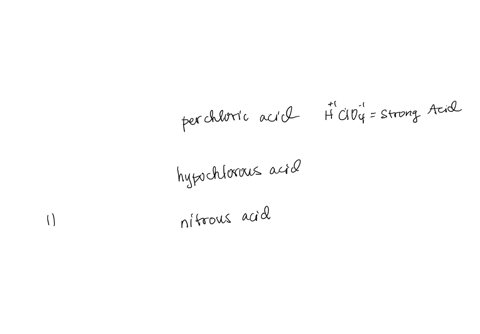 perchloric acid H⁺¹ ClO₄⁻¹ = Strong Acid
hypochlorous acid
11 nitrous acid